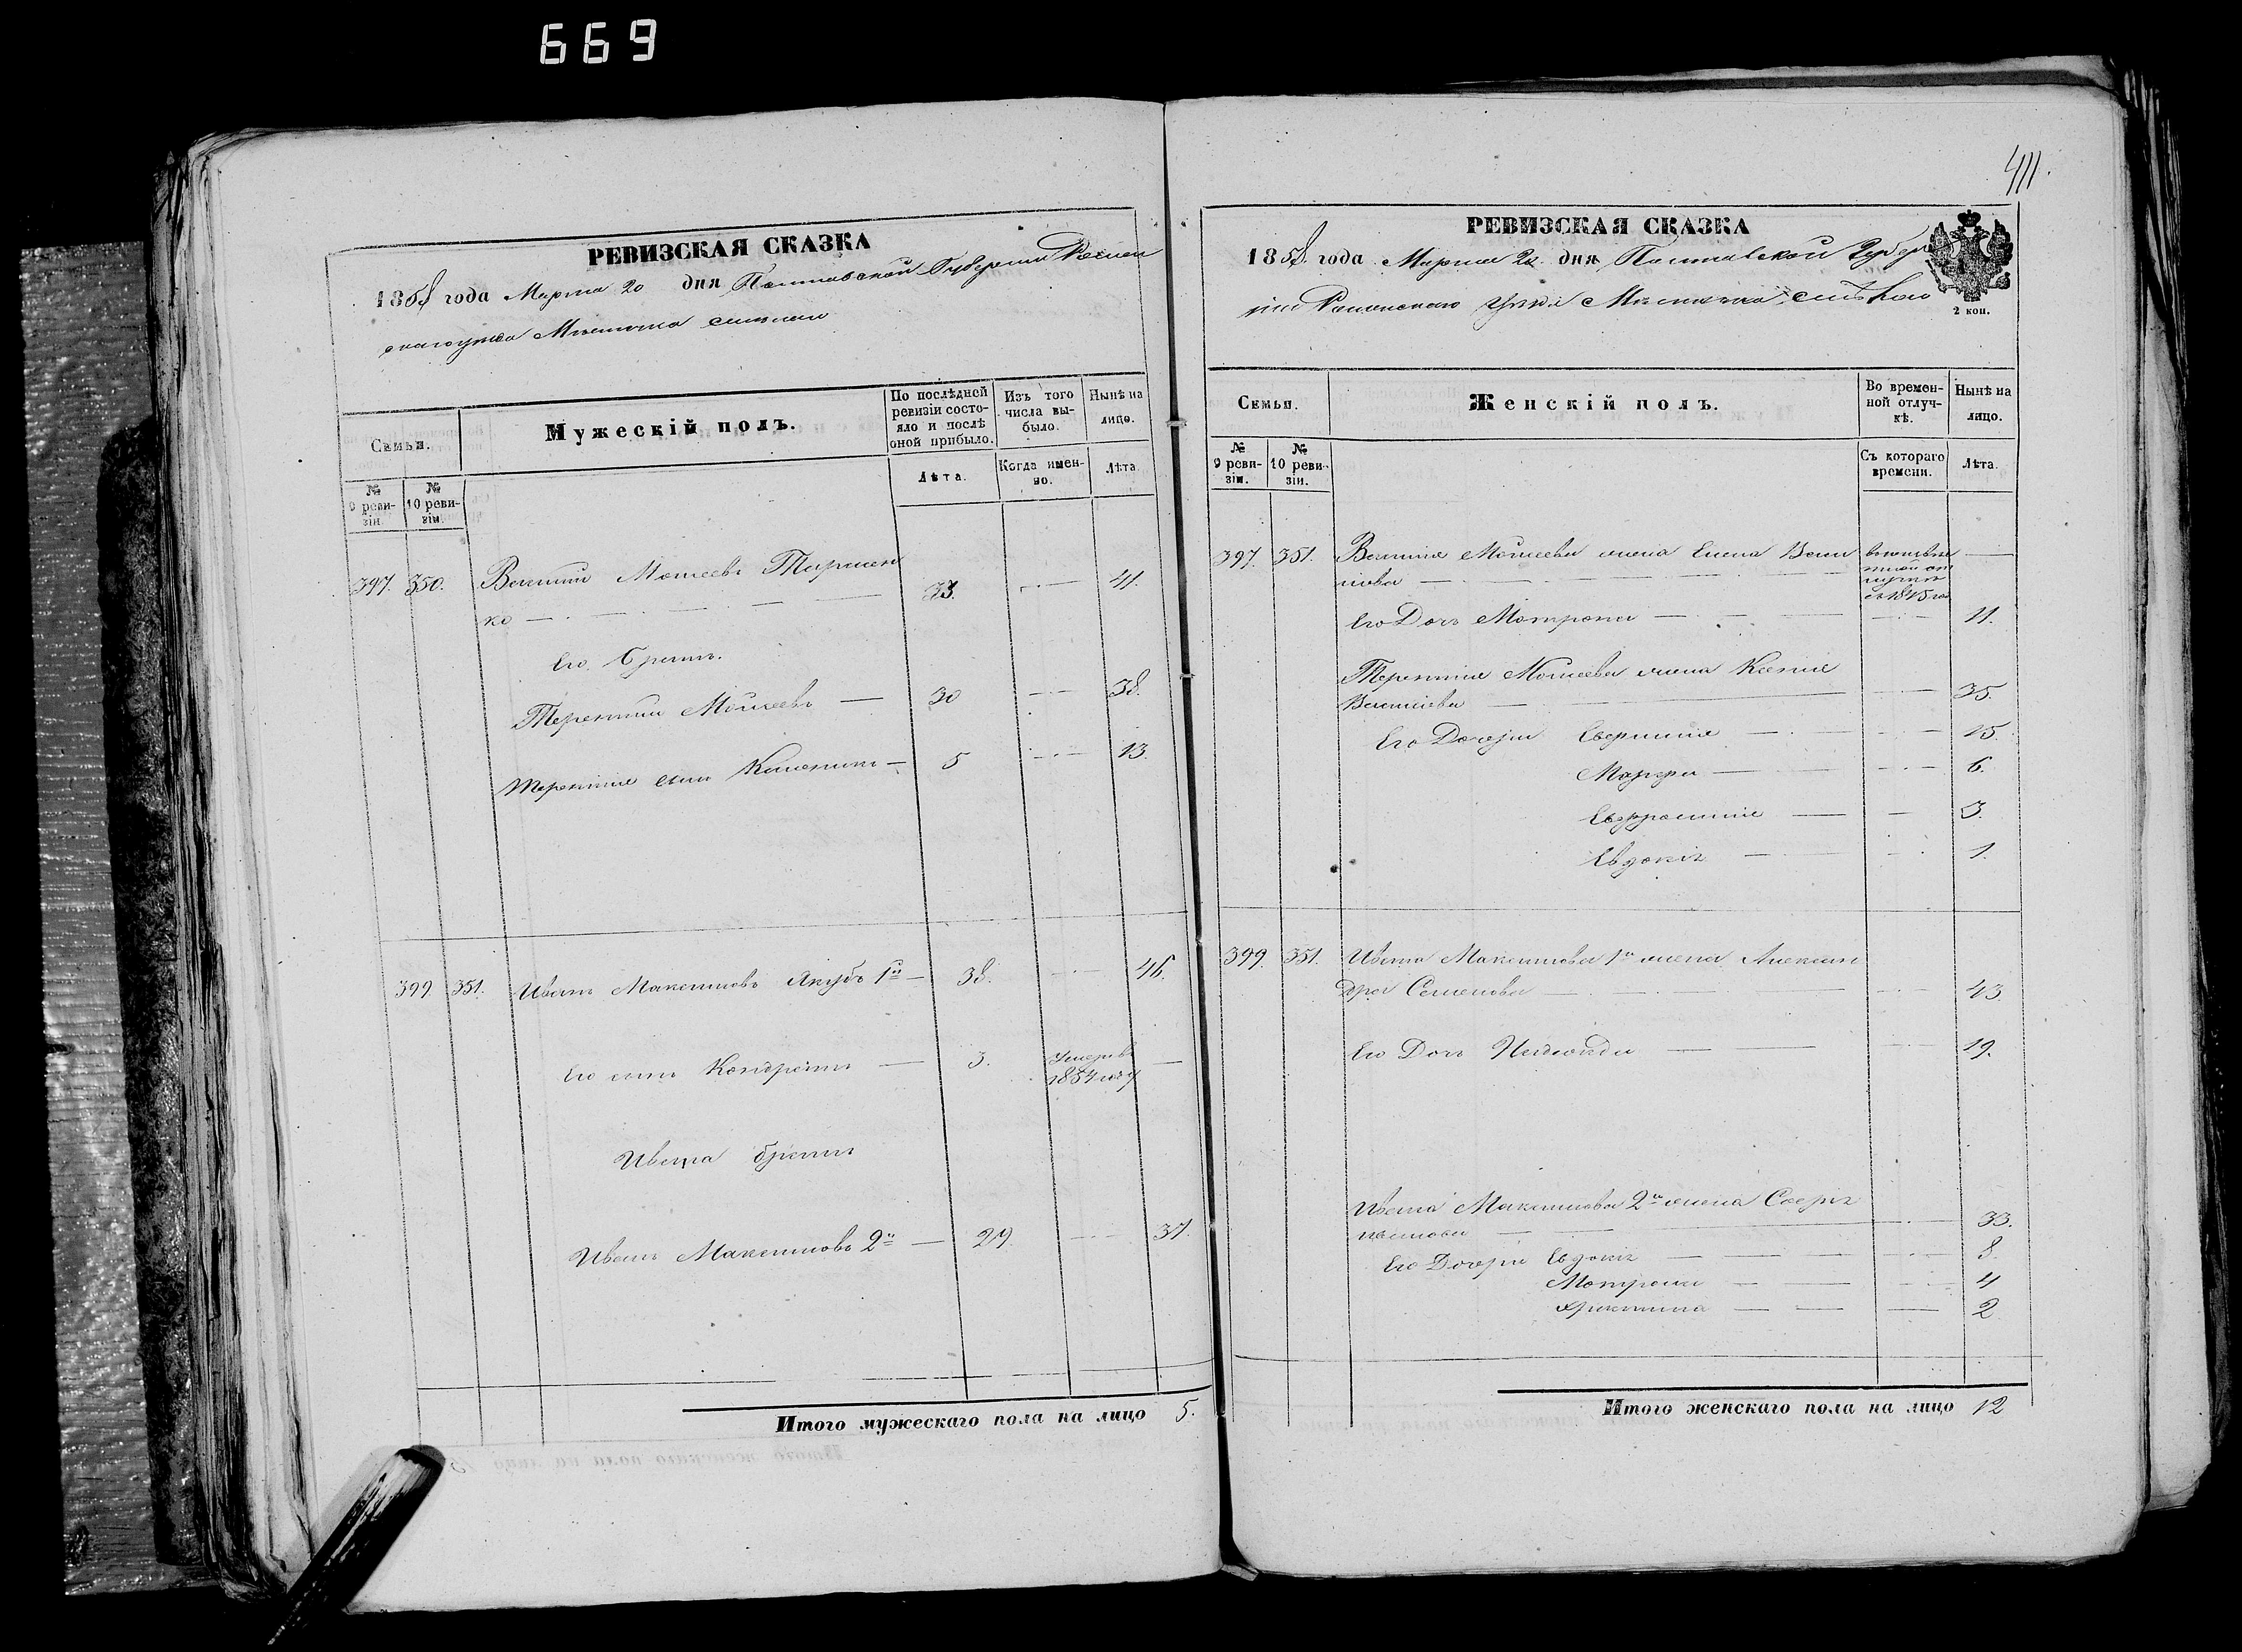 669
411.
РЕВИЗСКАЯ СКАЗКА
1858 года Марта 20 дня Полтавской Губернии Ромен
скаго уезда Местечка
По последней ревизіи состояло и после оной прибыло.
Изъ того числа выбыло.
Ныне на лицо.
Семьи.
Мужескій полъ.
Лѣта.
Когда именно.
Лѣта.
№ 9 ревизіи.
№ 10 ревизіи.
397. 350. Моисеевъ
ко
33. 41.
Его Братъ.
Терентий Моисеевъ — 30 38.
Терентия сынъ — 5 13.
399. 351. Иванъ Максимовъ Якубъ 1й — 38. 46.
Его сынъ Кондратъ — 3. Умеръ въ —
1854 году
Ивана братъ
Иванъ Максимовъ 2й — 29 37.
Итого мужескаго пола на лицо 5.
РЕВИЗСКАЯ СКАЗКА
1858 года Марта 20 дня Полтавской Губер
нии Роменскаго уезда Местечка
2 коп.
Семьи.
Женскій полъ.
Во временной отлучкѣ.
Нынѣ на лицо.
№ 9 ревизіи.
№ 10 ревизіи.
Съ котораго времени.
Лѣта.
397. 351. Моисеева жена Елена —
с 1845 го
Его Дочь Мотрона — 11.
Терентия Моисеева жена Ксения
35.
Его Дочери 15
6.
Евфросиния — 3.
Евдокия — 1.
399. 351. Ивана Максимова 1го жена Алексан
дра Семенова — 43.
Его Дочь — 19.
Ивана Максимова 2го жена
33.
Его Дочери Евдокия — 8.
Мотрона — 4
Христина — 2
Итого женскаго пола на лицо 12